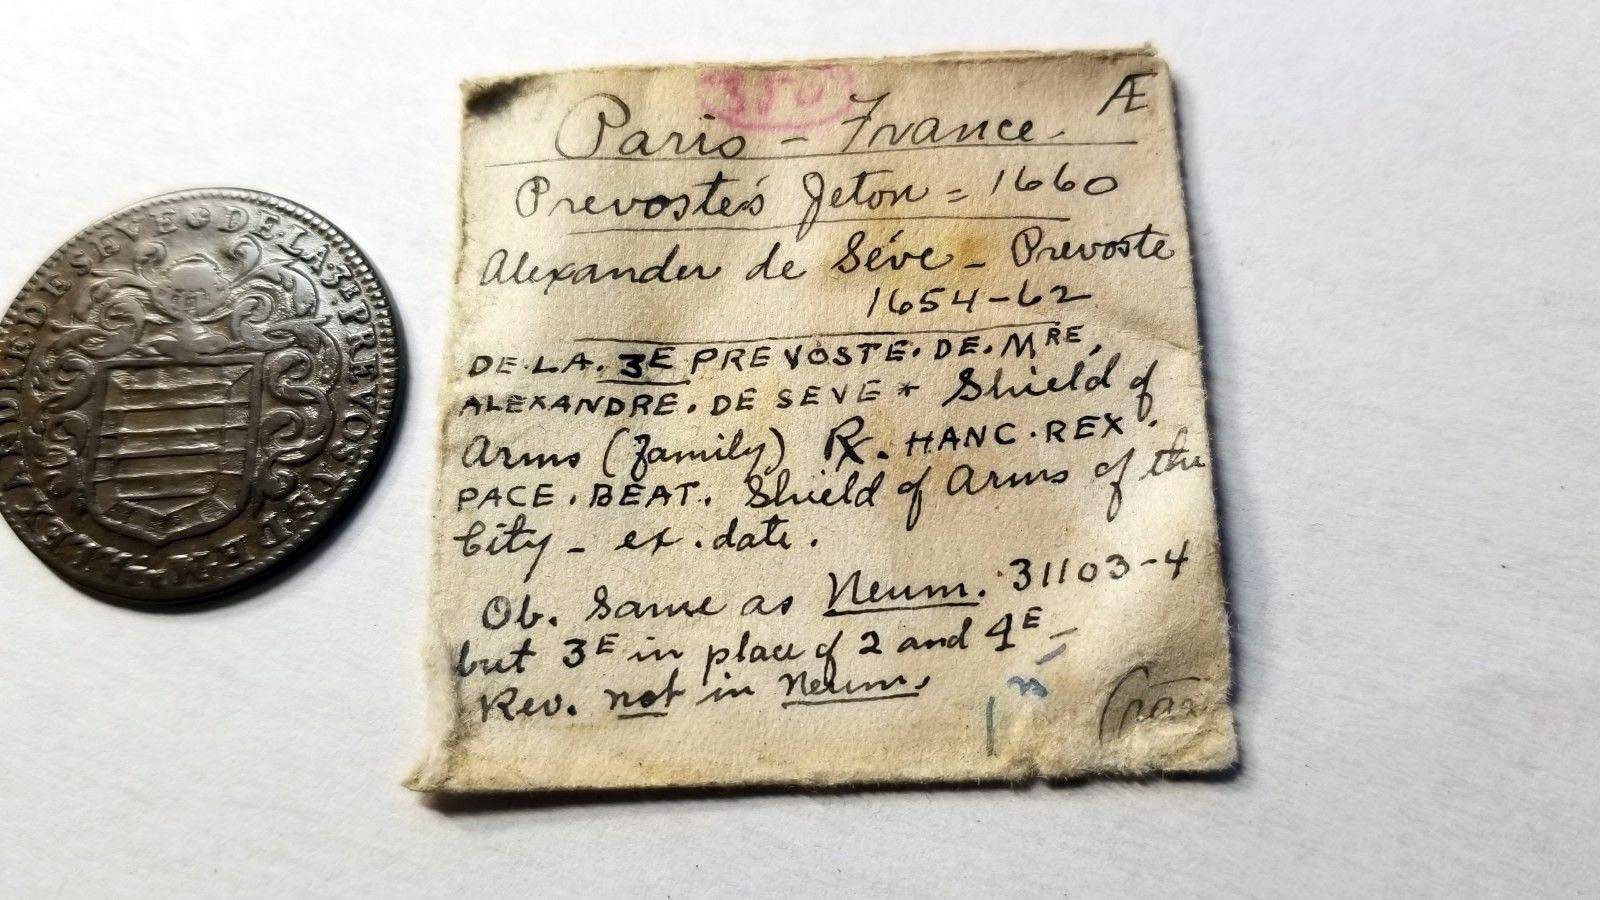 DE·LA·3E·PREVOSTE·DE·M·ALEXANDRE·DE·SEVE
350
Æ
Paris - France.
Prevoste's Jeton = 1660
Alexander de Séve - Prevoste
1654-62
DE·LA. 3E PREVOSTE. DE. MRE,
ALEXANDRE. DE SEVE * Shield of
Arms (family) R. HANC. REX.
PACE. BEAT. Shield of Arms of the
City - ex. date.
Ob. Same as Neum. 31103-4
but 3E in place of 2 and 4E -
Rev. not in Neum.